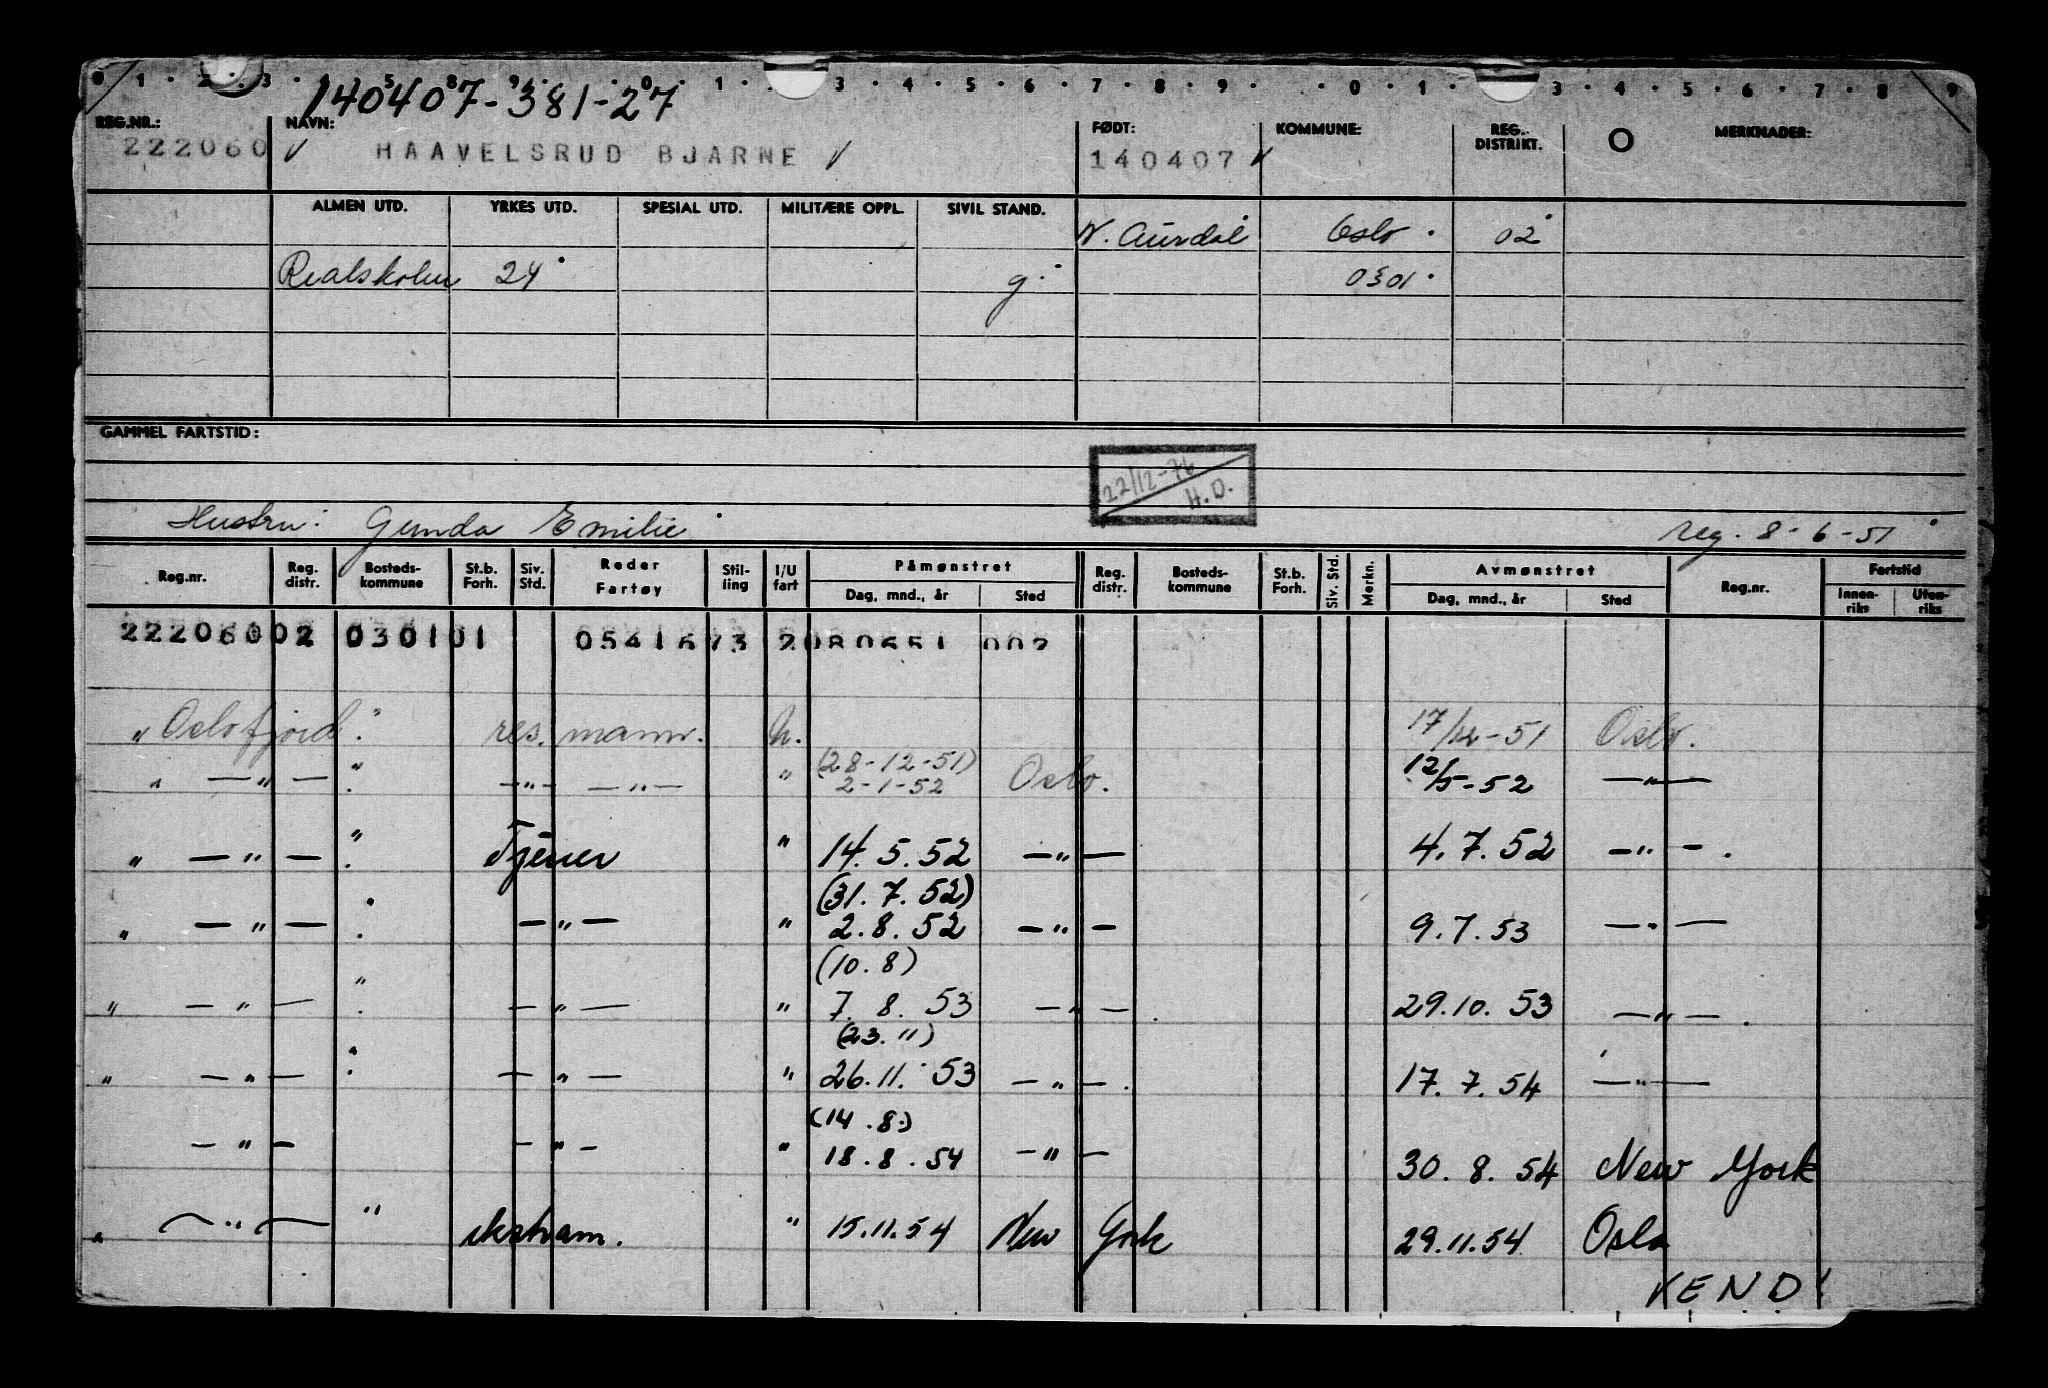 1 2 3 5 8 9 0 1 3 4 5 6 7 8 9 0 1 3 4 5 6 7 8 9
140407-381-27
REG.NR.: NAVN: FØDT: KOMMUNE: REG. DISTRIKT. O MERKNADER:
222060 HAAVELSRUD BJARNE 140407
ALMEN UTD. YRKES UTD. SPESIAL UTD. MILITÆRE OPPL. SIVIL STAND.
N. Aurdal Oslo. 02
Realskolen 24 g. 0301.
GAMMEL FARTSTID:
22/12-76
H.O.
Hustru: Gunda Emilie reg. 8-6-51
Reg.nr. Reg. distr. Bosteds- kommune St.b. Forh. Siv. Std. Reder Fartøy Stil- ling I/U fart Påmønstret Reg. distr. Bosteds- kommune St.b. Forh. Siv. Std. Merkn. Avmønstret Reg.nr. Fartstid
Dag, mnd., år Sted Dag, mnd., år Sted Innen- riks Uten- riks
22206002 030101 0541673 2080651 002
"Oslofjord". res. mann. u. 17/12-51 Oslo.
(28-12-51)
" — " — ". — " — — " — " 2-1-52 Oslo. 12/5-52 — " —
" — " — ". Tjener " 14.5.52 — " — 4.7.52 — " — .
(31.7.52)
" — " — ". — " — " 2.8.52 — " — 9.7.53 — " —
(10.8)
" — " — ". — " — " 7.8.53 — " — . 29.10.53 — " — .
(23.11)
" — " — ". — " — " 26.11.53 — " — . 17.7.54 — " —
(14.8.)
— " — — " — " 18.8.54 — " — 30.8.54 New York
" — " — " ekstram. " 15.11.54 New York 29.11.54 Oslo
VEND!